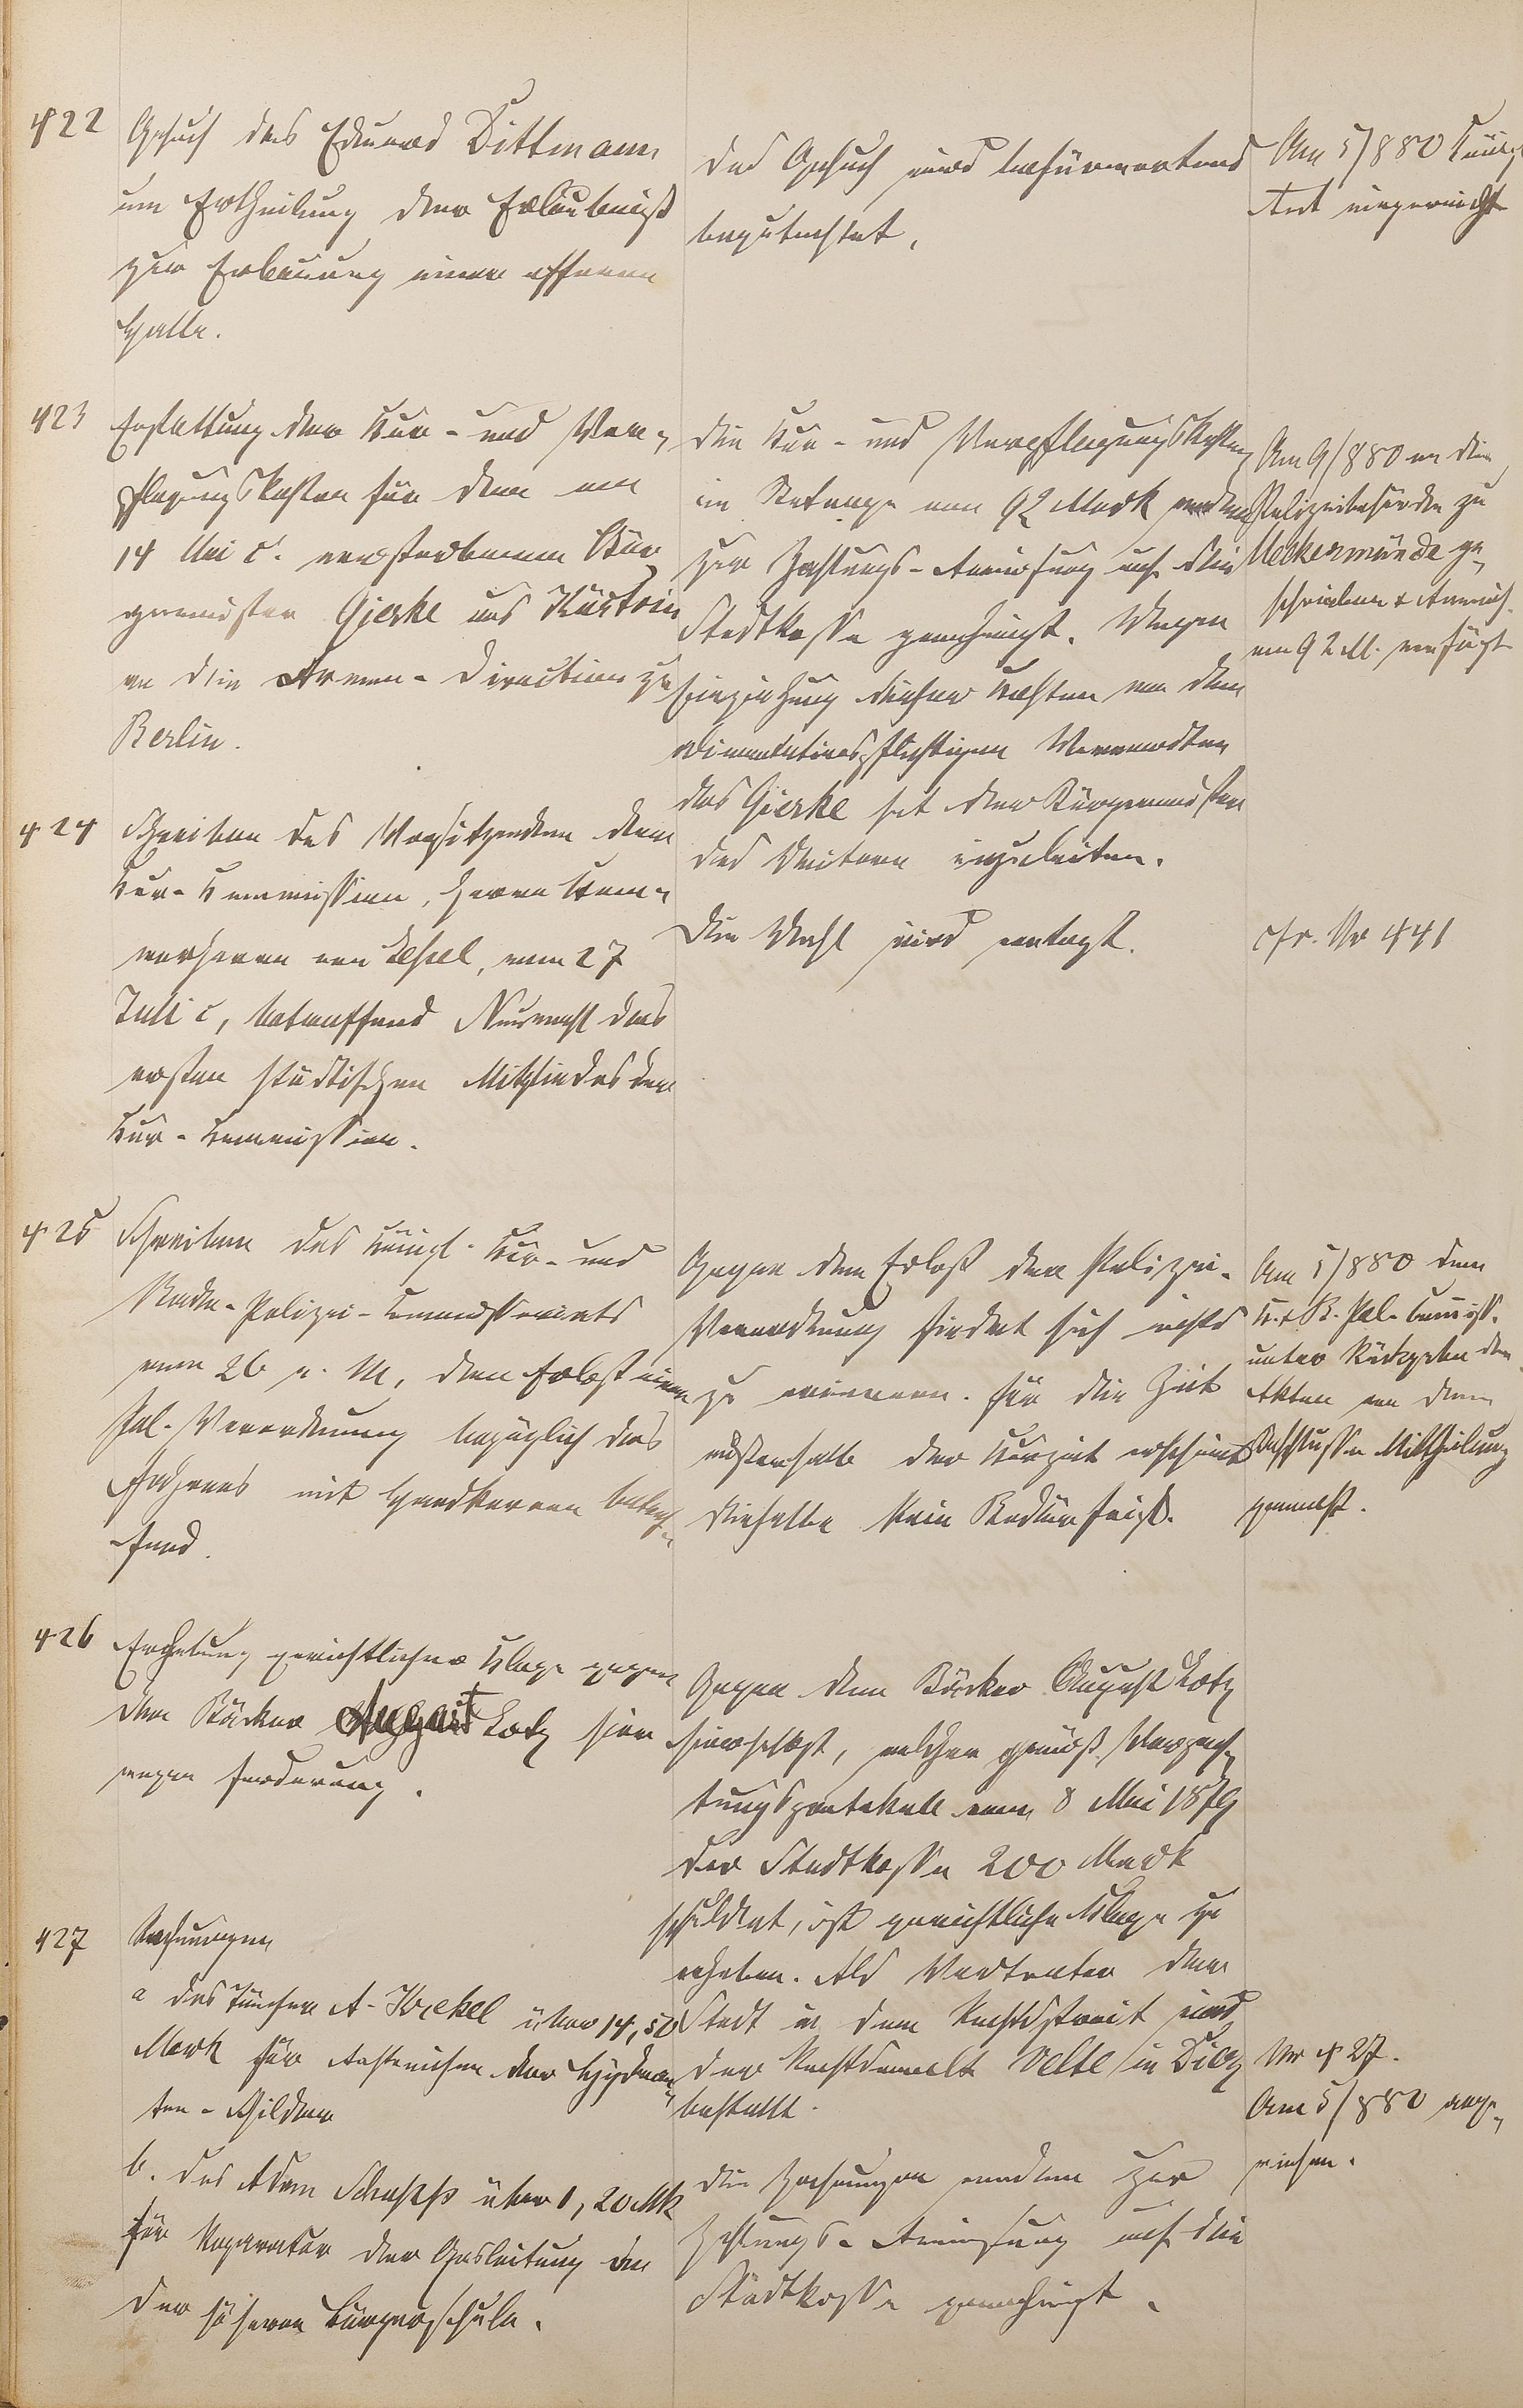 422
Gesuch des Eduard Dittmann
um Ertheilung der Erlaubniß
zur Erbauung einer offenen
Halle.
Das Gesuch wird befürwortend
begutachtet.
Am 5/8 80 Königl
Amt eingereicht
423
Erstattung der Kur- und Ver-
pflegungskosten für den am
14 Mai c. verstorbenen Bür
germeister Gierke aus Küstrin
an die Armen-Direction zu
Berlin.
Die Kur- und Verpflegungskosten
im Betrage von 92 Mark werden
zur Zahlungs-Anweisung auf die
Stadtkasse genehmigt. Wegen
Einziehung dieser Kosten von den
alimentationspflichtigen Verwandten
des Gierke hat der Bürgermeister
das Weitere einzuleiten.
Am 9/8 80 an die
Polizeibehörde zu
Ueckermünde ge-
schrieben & Anweis.
von 92 M. verfügt
424
Schreiben des Vorsitzenden der
Kur-Kommission, Herrn Kam-
merherrn von Lepel, vom 27
Juli c, betreffend Neuwahl des
ersten städtischen Mitgliedes der
Kur-Kommission.
Die Wahl wird vertagt.
cfr. Nr 441
425
Schreiben des Königl. Kur- und
Bade-Polizei-Kommissariats
vom 26 v. M, den Erlaß einer
Pol-Verordnung bezüglich des
Fahrens mit Handkarren betref-
fend.
Gegen den Erlaß der Polizei-
Verordnung findet sich nichts
zu erinnern. Für die Zeit
außerhalb der Kurzeit erscheint
dieselbe kein Bedürfniß.
Am 5/8 80 dem
K. & B. Pol. Commiss.
unter Rückgabe der
Akten von dem
Beschlusse Mittheilung
gemacht.
426
Erhebung gerichtlicher Klage gegen
den Bäcker August Lotz hier
wegen Forderung.
Gegen den Bäcker August Lotz
hierselbst, welcher gemäß Verpach-
tungsprotokoll vom 8 Mai 1879
der Stadtkasse 200 Mark
schuldet, ist gerichtliche Klage zu
erheben. Als Vertreter der
Stadt in dem Rechtsstreit wird
der Rechtsanwalt Velte in Diez
bestellt.
427
Rechnungen
a des Tüncher A. Krekel über 14,50
Mark für Anstreichen der Hydran-
ten-Schilder
b. des Adam Schupp über 1,20 Mk
für Reparatur der Gasleitung in
der höheren Bürgerschule.
Die Rechnungen werden zur
Zahlungs-Anweisung auf die
Stadtkasse genehmigt.
Nr 427.
Am 5/8 80 ange-
wiesen.